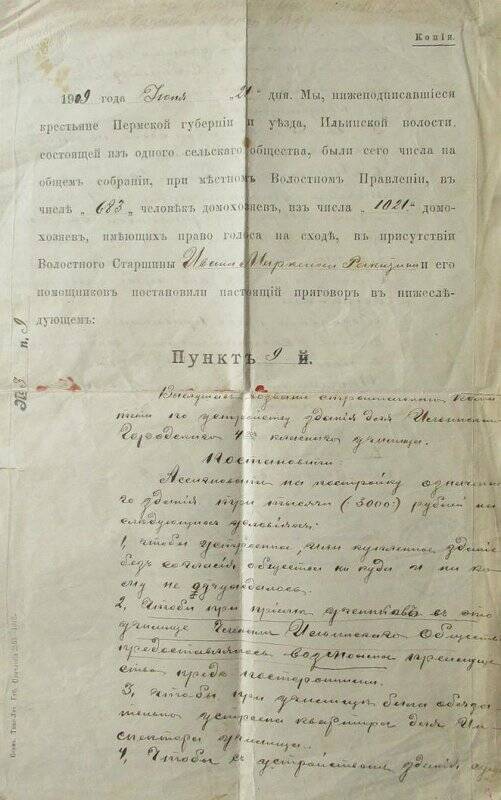 Копія.
1909 года Іюня „21“ дня. Мы, нижеподписавшіеся
крестьяне Пермской губерніи и уѣзда, Ильинской волости,
состоящей изъ одного сельскаго общества, были сего числа на
общемъ собраніи, при мѣстномъ Волостномъ Правленіи, въ
числѣ „683„ человѣкъ домохозяевъ, изъ числа „1021“ домо-
хозяевъ, имѣющихъ право голоса на сходѣ, въ присутствіи
Волостного Старшины Ивана и его
помощниковъ постановили настоящій приговоръ въ нижеслѣ-
дующемъ:
п. 9
Пунктъ 9 й.
Выслушавъ строительнаго Коми
тета по устройству зданія для Ильинскаго
Городскаго 4хъ класснаго училища.
Постановили:
Ассигновать на постройку означенна
го зданія три тысячи (3000) рублей на
слѣдующихъ условіяхъ:
1, чтобы устроенное, или купленное зданіе
безъ согласія общества ни куда и ни ко
му не отчуждалось.
2, Чтобы при пріемѣ учениковъ въ это
училище Членамъ Ильинскаго Общества
предоставлялось преимуще
ство предъ посторонними.
3, чтобы при училищѣ была обяза-
тельно устроена квартира для Ин
спектора училища.
4, Чтобы съ устройствомъ зданія